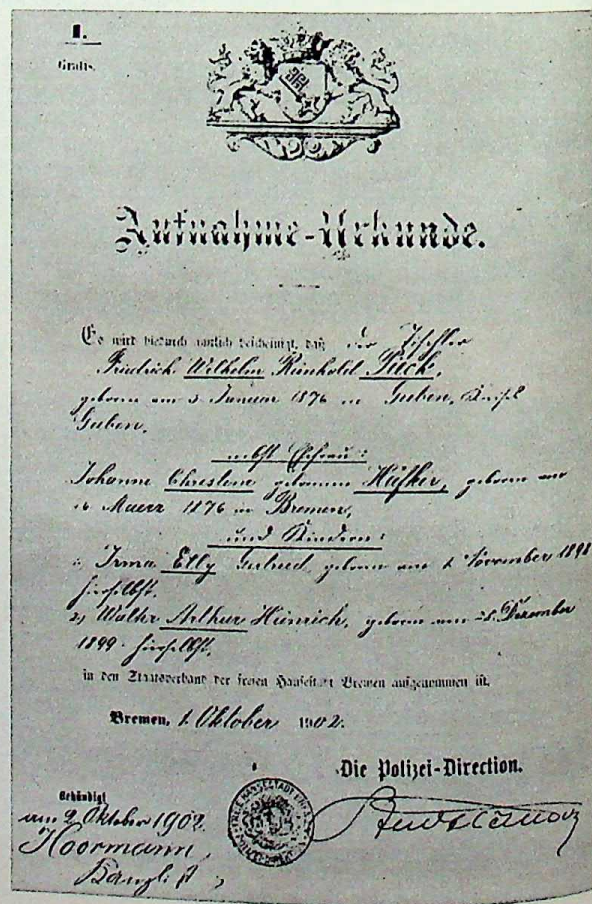 1.
Gratis.
Aufnahme-Urkunde.
Es wird hierdurch amtlich bescheinigt, daß der Tischler
Friedrich Wilhelm Reinhold Pieck,
geboren am 3 Januar 1876 in Guben, Kreis
Guben,
nebst Ehefrau:
Johanne Christine geborenen Häfker, geboren am
Maerz 1876 in Bremen,
und Kindern:
1, Irma Elly Gertrud, geboren am November 1898
hierselbst,
2, Walter Arthur Heinrich, geboren am 28. Dezember
1899 hierselbst,
in den Staatsverband der freien Hansestadt Bremen aufgenommen ist.
Bremen, 1. Oktober 1902.
Die Polizei-Direction.
Behändigt
am 2 Oktober 1902.
Hoormann,
Kanzl.